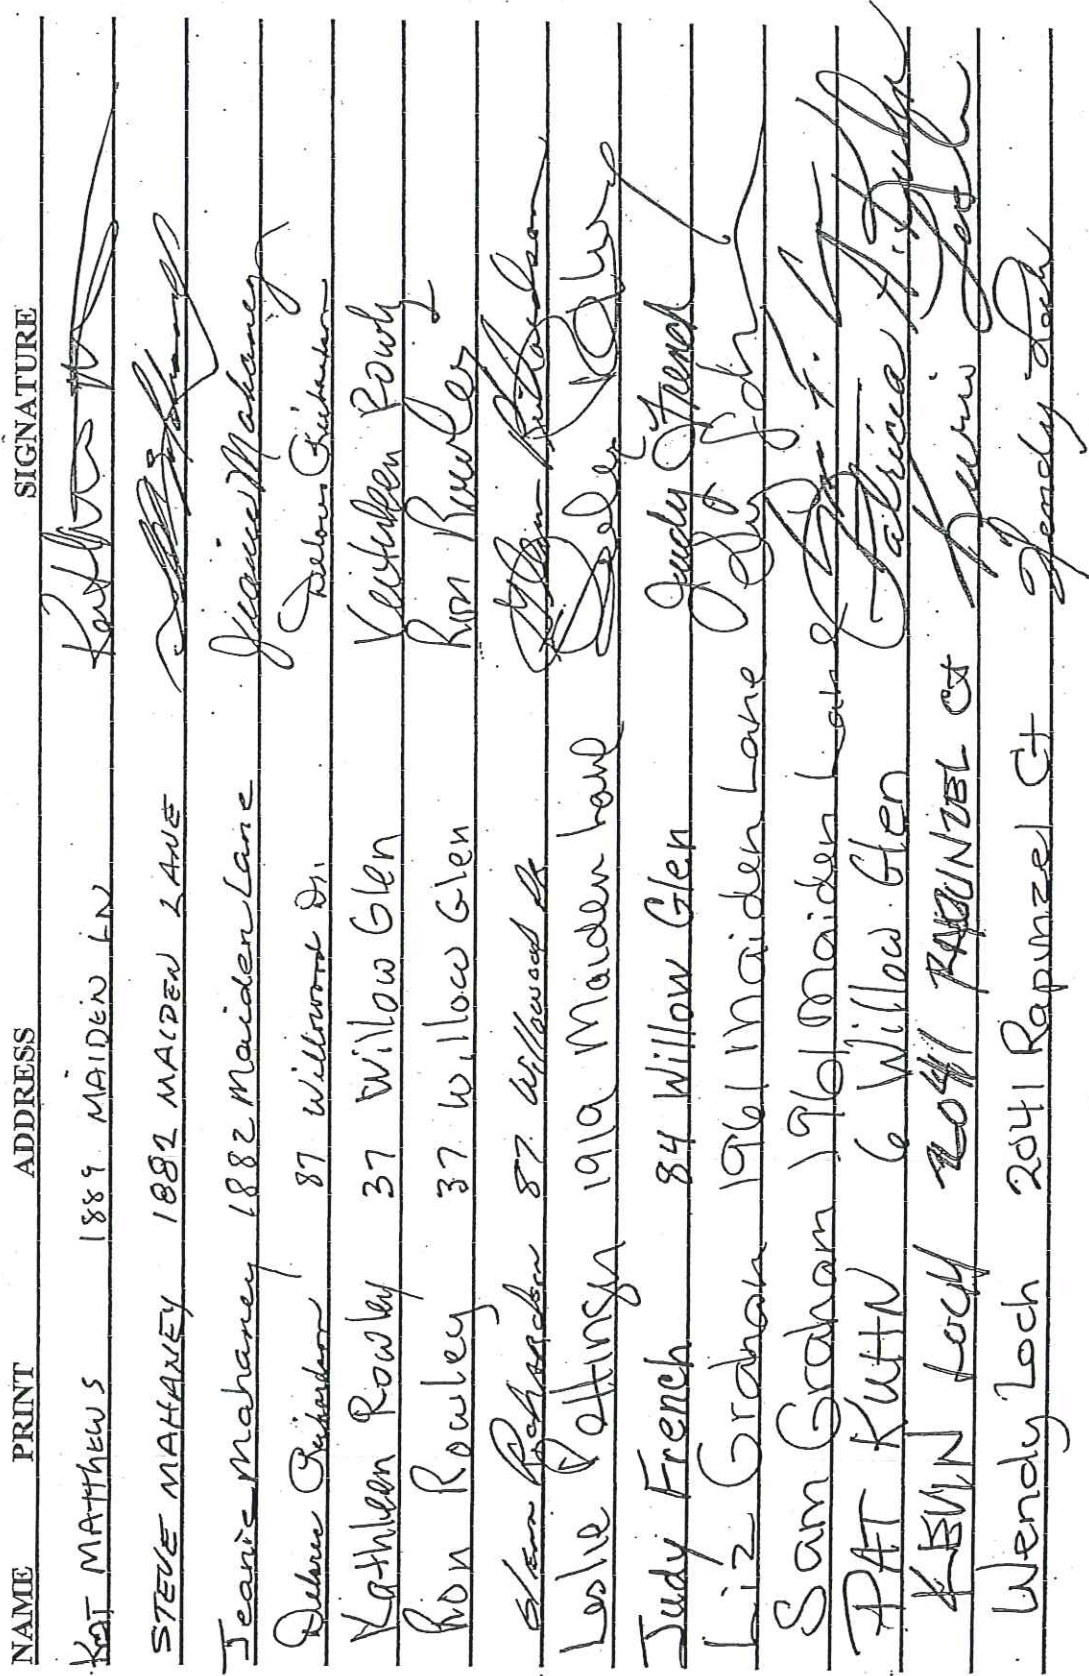 NAME PRINT ADDRESS SIGNATURE
KAT MATTHEWS 1889 MAIDEN LN
STEVE MAHANEY 1882 MAIDEN LANE
Jeanie Mahaney 1882 Maiden Lane Jeanie Mahaney
Delores Richardson 87 Willowood Dr. Delores Richardson
Kathleen Rowley 37 Willow Glen Kathleen Rowley
Ron Rowley 37 Willow Glen Ron Rowley
Glenn Richardson 87 Willowood Dr Glenn Richardson
Leslie Pettingr 1919 Maiden Lane Leslie
Judy French 84 Willow Glen Judy French
Liz Graham 1961 Maiden Lane
Sam Graham 1961 Maiden Lane
PAT KUHN 6 Willow Glen Patricia A. Kuhn
KEVIN LOCH 2041 RAPUNZEL Ct Kevin Loch
Wendy Loch 2041 Rapunzel Ct Wendy Loch